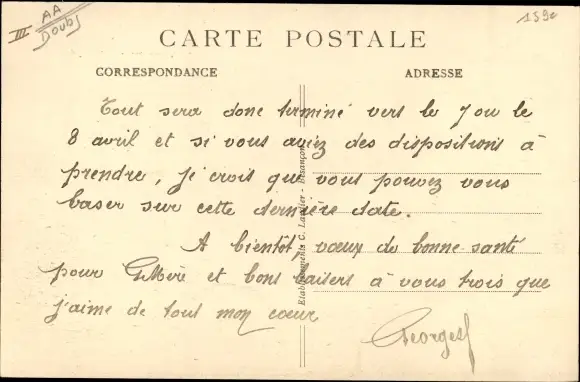 III AA
Doubs
159e
CARTE POSTALE
CORRESPONDANCE
ADRESSE
Tout sera donc terminé vers le 7 ou le
8 avril et si vous aviez des dispositions à
prendre, je crois que vous pouvez vous
baser sur cette dernière date.
A bientôt, vœux de bonne santé
pour et bons baisers à vous trois que
j'aime de tout mon cœur
Georges
Etablissements C. Lardier - Besançon